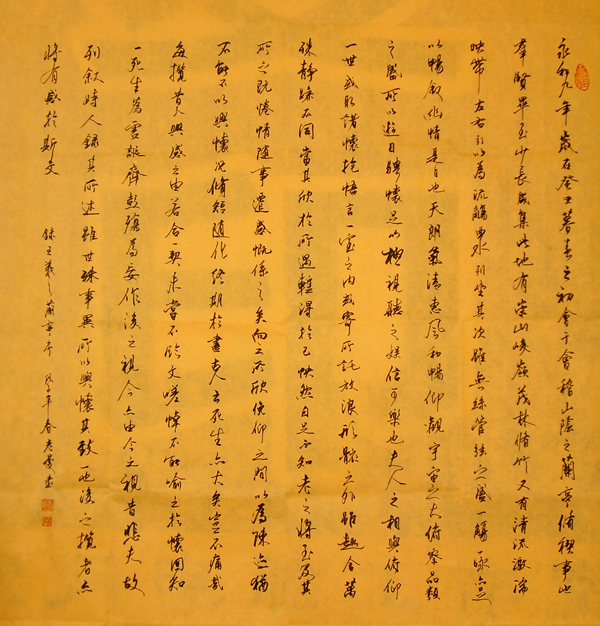 永和九年歲在癸丑暮春之初會于會稽山陰之蘭亭脩稧事也
羣賢畢至少長咸集此地有崇山峻嶺茂林脩竹又有清流激湍
映帶左右引以為流觴曲水列坐其次雖無絲管弦之盛一觴一詠亦足
以暢敘幽情是日也天朗氣清惠風和暢仰觀宇宙之大俯察品類
之盛所以遊目騁懷足以極視聽之娛信可樂也夫人之相與俯仰
一世或取諸懷抱悟言一室之內或寄所託放浪形骸之外雖趣舍萬
殊靜躁不同當其欣於所遇輒得於己怏然自足不知老之將至及其
所之既惓情隨事遷感慨係之矣向之所欣俛仰之間以為陳迹猶
不能不以興懷況脩短隨化終期於盡云死生亦大矣豈不痛哉
每攬昔人興感之由若合一契未嘗不臨文嗟悼不能喻之於懷固知
一死生為虛誕齊彭殤為妄作後之視今亦由今之視昔悲夫故
列敘時人錄其所述雖世殊事異所以興懷其致一也後之攬者亦
將有感於斯文 錄王羲之蘭亭序 戊子年春